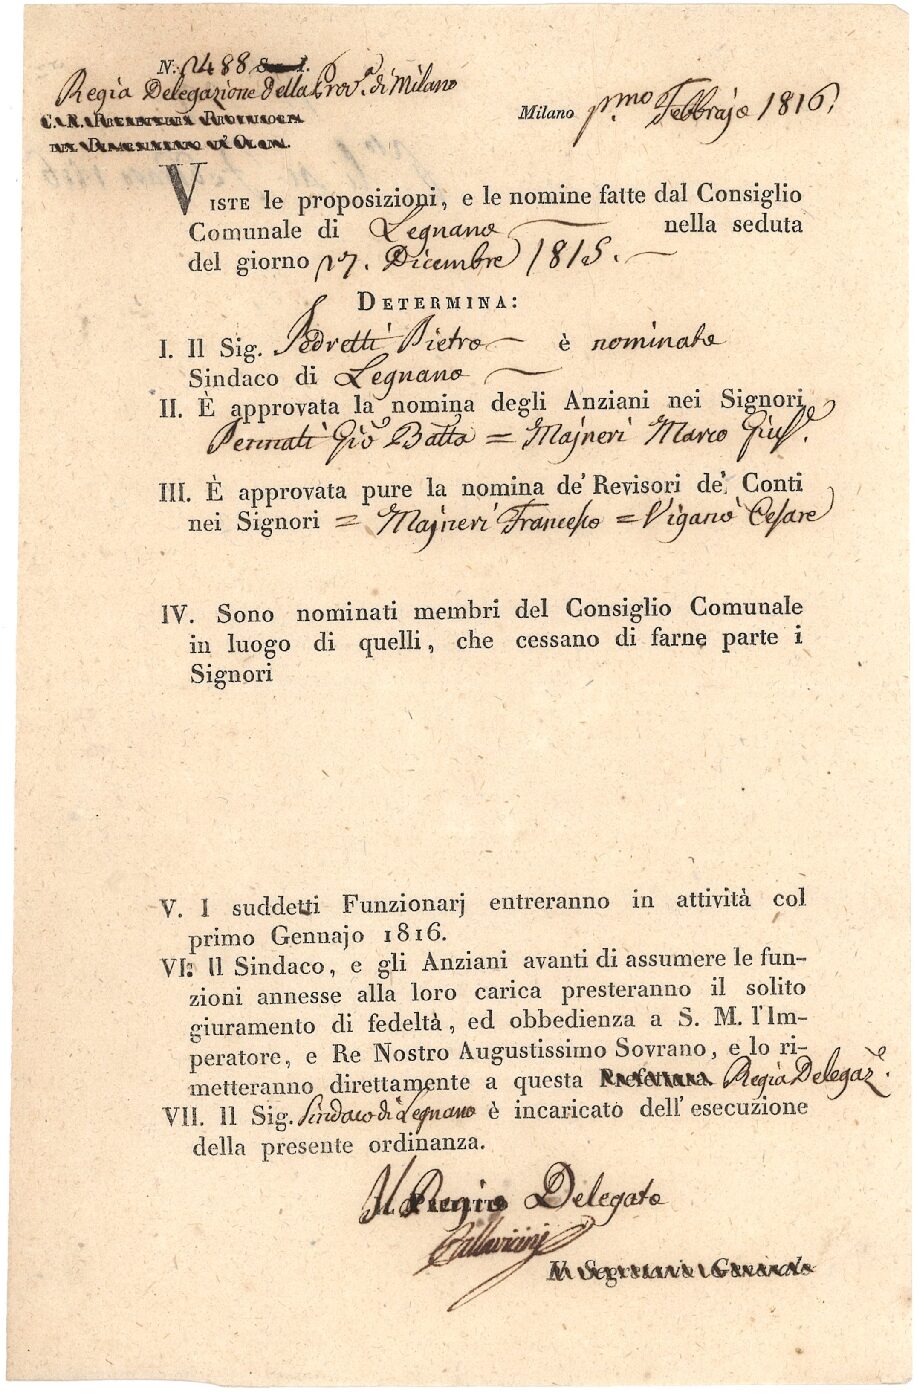 N. 2488
Regia Delegazione della Prov.ª di Milano
C. R. PREFETTURA PROVINCIALE
DEL DIPARTIMENTO D'OLONA.
Milano p.mo Febbrajo 1816.
VISTE le proposizioni, e le nomine fatte dal Consiglio
Comunale di Legnano nella seduta
del giorno 17. Dicembre 1815.
DETERMINA:
I. Il Sig. Pedretti Pietro è nominato
Sindaco di Legnano
II. È approvata la nomina degli Anziani nei Signori
Pennati Giõ Batta = Majneri Marco Giuse.
III. È approvata pure la nomina de' Revisori de' Conti
nei Signori = Majneri Francesco = Viganò Cesare
IV. Sono nominati membri del Consiglio Comunale
in luogo di quelli, che cessano di farne parte i
Signori
V. I suddetti Funzionarj entreranno in attività col
primo Gennajo 1816.
VI. Il Sindaco, e gli Anziani avanti di assumere le fun-
zioni annesse alla loro carica presteranno il solito
giuramento di fedeltà, ed obbedienza a S. M. l'Im-
peratore, e Re Nostro Augustissimo Sovrano, e lo ri-
metteranno direttamente a questa Prefettura Regia Delegaz.e
VII. Il Sig. Sindaco di Legnano è incaricato dell'esecuzione
della presente ordinanza.
Il Regio Delegato
Pallavicini
Il Segretario Generale